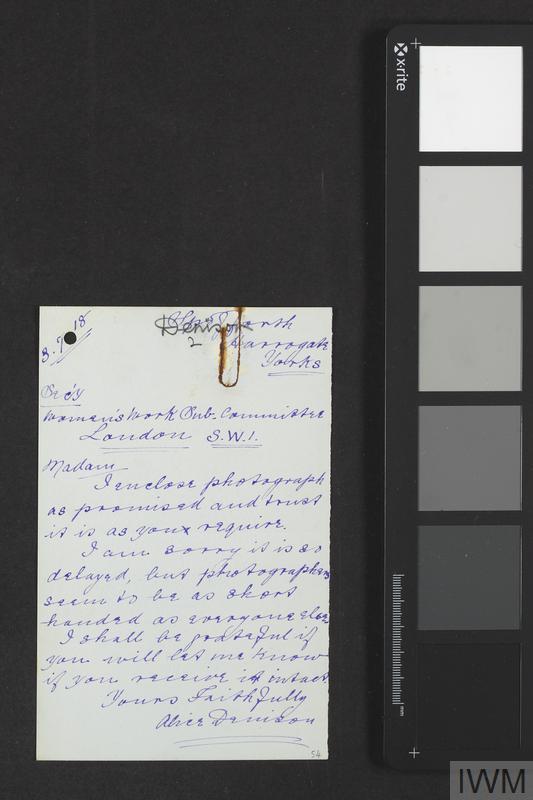 8.7 18
Denison
2
Harrogate
Yorks
Sec'y
Women's Work Sub-Committee
London S.W.1.
Madam
I enclose photograph
as promised and trust
it is as you require.
I am sorry it is so
delayed, but photographers
seem to be as short
handed as everyone else
I shall be grateful if
you will let me know
if you receive it intact
Yours Faithfully
Alice Denison
54
x-rite
mm
IWM